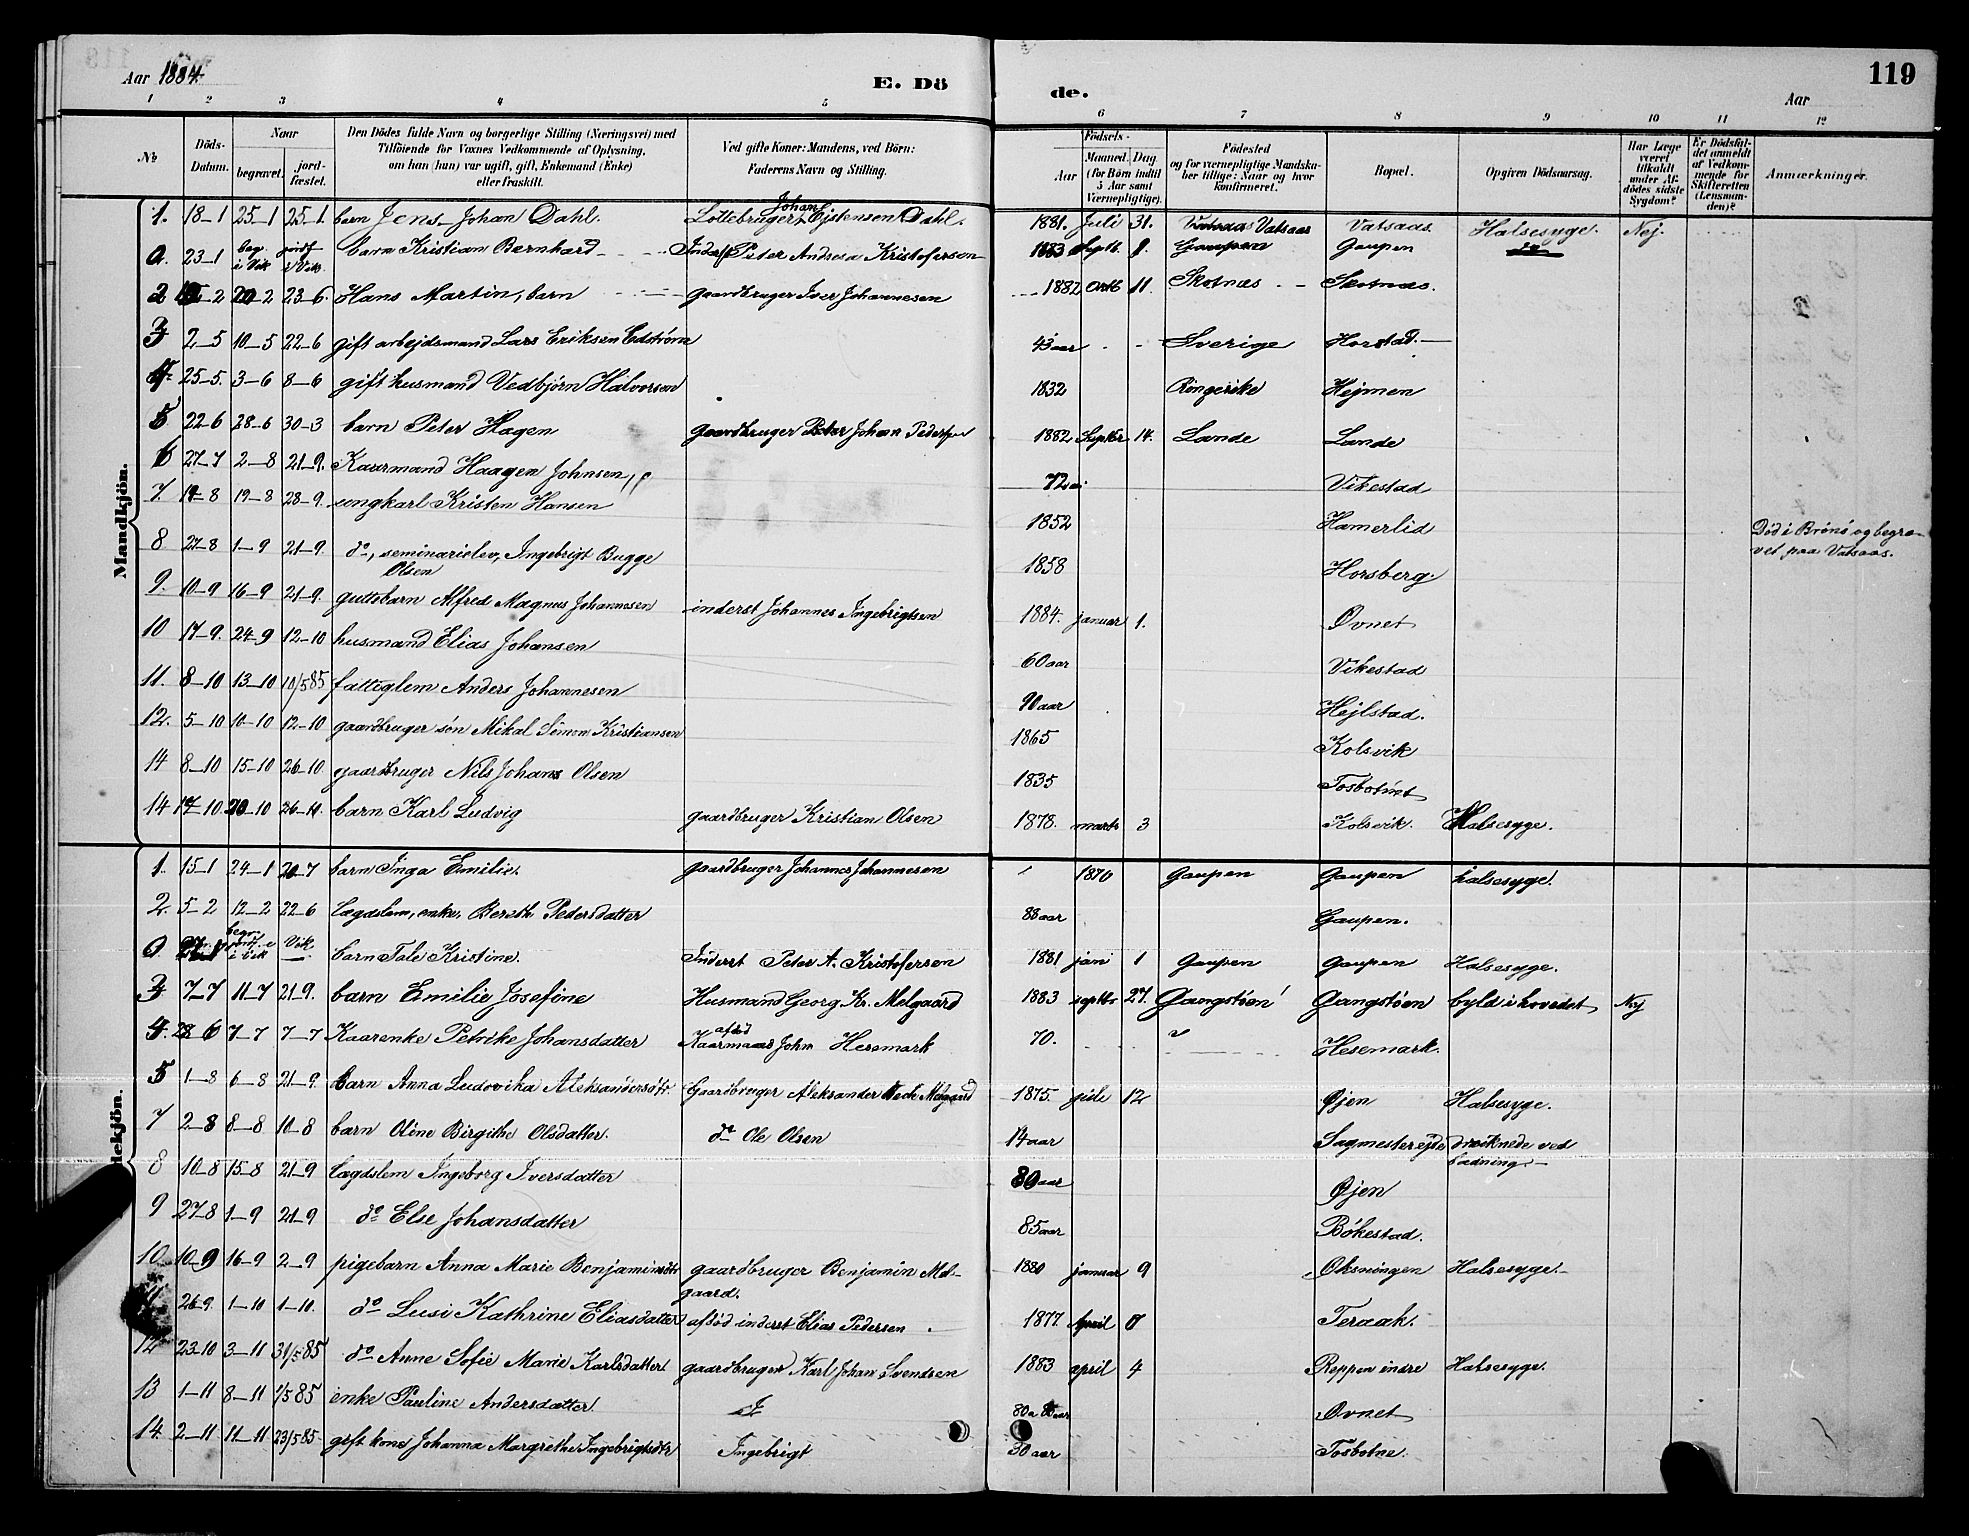 Aar 1884.
E. Dö
de.
Aar
119
1 2 3 4 5 6 7 8 9 10 11 12
No
Döds-Datum.
Naar
begravet.
jord-fæstet.
Den Dödes fulde Navn og borgerlige Stilling (Næringsvei) med
Tilföiende for Voxnes Vedkommende af Oplysning,
om han (hun) var ugift, gift, Enkemand (Enke)
eller fraskilt.
Ved gifte Koner: Mandens, ved Börn:
Faderens Navn og Stilling.
Födsels-
Aar
Maaned. Dag.
(for Börn indtil
5 Aar samt
Værnepligtige).
Födested
og for værnepligtige Mandska-
ber tillige: Naar og hvor
konfirmeret.
Bopæl.
Opgiven Dödsaarsag.
Har Læge
været
tilkaldt
under Af-
dödes sidste
Sygdom?
Er Dödsfal-
det anmeldt
af Vedkom-
mende for
Skifteretten
(Lensman-
den)?
Anmærkninger.
Mandkjön.
1. 18-1 25-1 25-1. barn Jens Johan Dahl. Lottebruger Johan Ejstensen Dahl. 1881. Juli 31. Vatsaas Vatsaas. Halsesyge. Nej.
0. 23-1 beg. i Vik jordf i Vik barn Kristian Bernhard Inderst Peter Andreas Kristofersen 1883 Septb. 8. Gaupen Gaupen do
2 20-2 23-6. Hans Martin, barn gaardbruger Iver Johannesen 1882 Octb 11. Skotnæs Skotnæs.
3 2-5 10-5 22-6 gift arbejdsmand Lars Eriksen Edstrøm 43 aar Sverige Horstad.
4 25-5. 3-6 8-6 gift husmand Vedbjørn Halvorsen 1832 Ringerike Hejmen
5 22-6 28-6 30-3 barn Peter Hagen gaardbruger Peter Johan Pedersen 1882 Septbr 14. Lande Lande
6 27-7 2-8 21-9. Kaarmand Haagen Johnsen 72 Vikestad
7. 14-8 19-8 28-9. ungkarl Kristen Hansen 1852 Hamerlid
8 27-8 1-9 21-9. do, seminarielev, Ingebrigt Bugge
Olsen 1858 Horsberg. Död i Brønö og begra-
vet paa Vatsaas.
9. 10-9 16-9 21-9. guttebarn Alfred Magnus Johannesen inderst Johannes Ingebrigtsen 1884. januar 1. Øvnet
10 17-9. 24-9 12-10 husmand Elias Johansen 60 aar Vikestad
11. 8-10 13-10 10/5 85 fattiglem Anders Johannesen 90 aar Hejlstad.
12. 5-10 10-10 12-10 gaardbruger søn Mikal Simon Kristiansen 1865 Kolsvik
14 8-10 15-10 26-10. gaardbruger Nils Johans Olsen 1835 Tosbotnet
14 17-10 20-10 26-10. barn Karl Ludvig gaardbruger Kristian Olsen 1878. marts 3 Kolsvik. Halsesyge.
1. 15-1 24-1 20-7 barn Inga Emilie. gaardbruger Johannes Johannesen 1870 Gaupen Gaupen halsesyge.
2. 5-2 12-2 22-6 lægdslem, enke, Bereth Pedersdatter 88 aar Gaupen.
0. begr. jordf. i Vik Vik barn Tale Kristine. Inderst Peter A. Kristofersen 1881 jani 1 Gaupen Gaupen Halsesyge.
3 7-7 11-7 21-9. barn Emilie Josefine Husmand Georg Kr. Melgaard 1883 septbr 27. Gangstøen Gangstøen byld i hovedet Nej
4. 28-6 7-7 7-7 Kaarenke Petrike Johansdatter afdød Kaarmand John Hesemark 70. Hesemark.
5 1-8 6-8 21-9. barn Anna Ludovika Aleksandersdtr. Gaardbruger Aleksander Melgaard 1875. juli 12 Øjen Halsesyge.
7 2-8 8-8 10-8 barn Oline Birgithe Olsdatter. do Ole Olsen 14 aar Sagmester druknede ved
badning.
8 10-8 15-8 21-9 lægdslem Ingeborg Iversdatter 80 aar Øjen
9 27-8 1-9 21-9 do Else Johansdatter 85 aar Bökestad.
10 10-9 16-9 2-9 pigebarn Anna Marie Benjaminsdtr gaardbruger Benjamin Mel-
gaard. 1880 januar 9 Oksningen Halsesyge.
26-9. 1-10 1-10. do Lusi Kathrine Eliasdatter afdød inderst Elias Pedersen 1877. April 7 Teraak.
12 23-10 3-11 31/5 85 do Anne Sofie Marie Karlsdatter gaardbruger Karl Johan Svendsen 1883 april 4 Reppen indre Halsesyge.
13 1-11 8-11 1/5 85 enke Pauline Andersdatter 80 Øvnet
14. 2-11 11-11 23/5 85 gift kone Johanna Margrethe Ingebrigtsdtr Ingebrigt 30 aar Tosbotne.